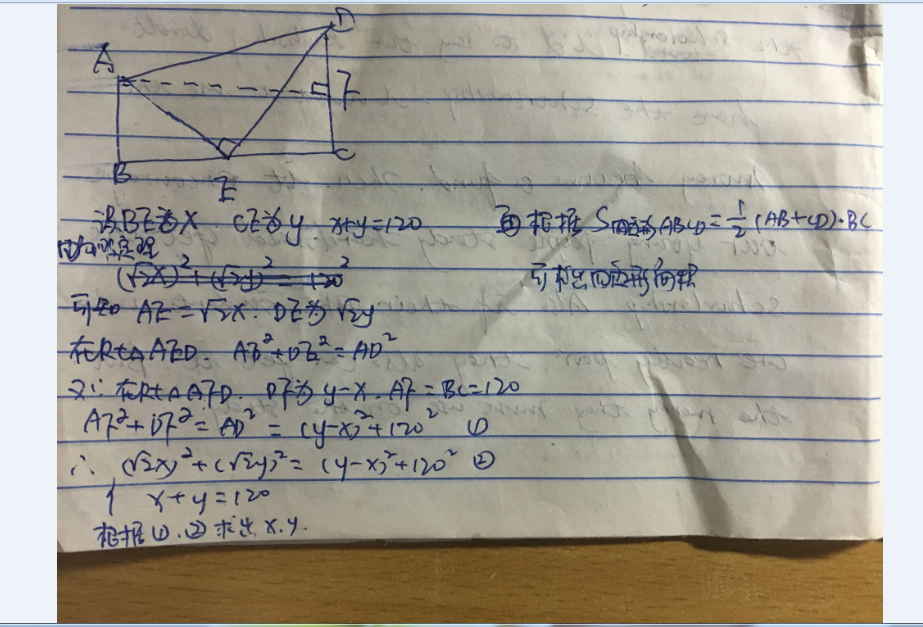 D
A
F
B
E
C
设BE为x CE为y x+y=120
由勾股定理
(√2x)²+(√2y)²=120²
可知 AE=√2x. DE为√2y
在Rt△AED. AE²+DE²=AD²
又∵在Rt△AFD. DF为y-x. AF=BC=120
AF²+DF²=AD²=(y-x)²+120² ①
∴ (√2x)²+(√2y)²=(y-x)²+120² ②
{ x+y=120
根据①.②求出x.y.
根据S四边形ABCD=½(AB+CD)·BC
可求出四边形面积